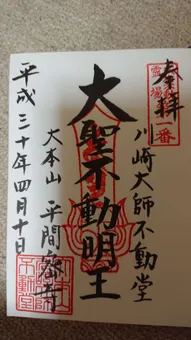 奉拝
川崎大師不動堂
大聖不動明王
大本山 平間寺
平成三十年四月十日